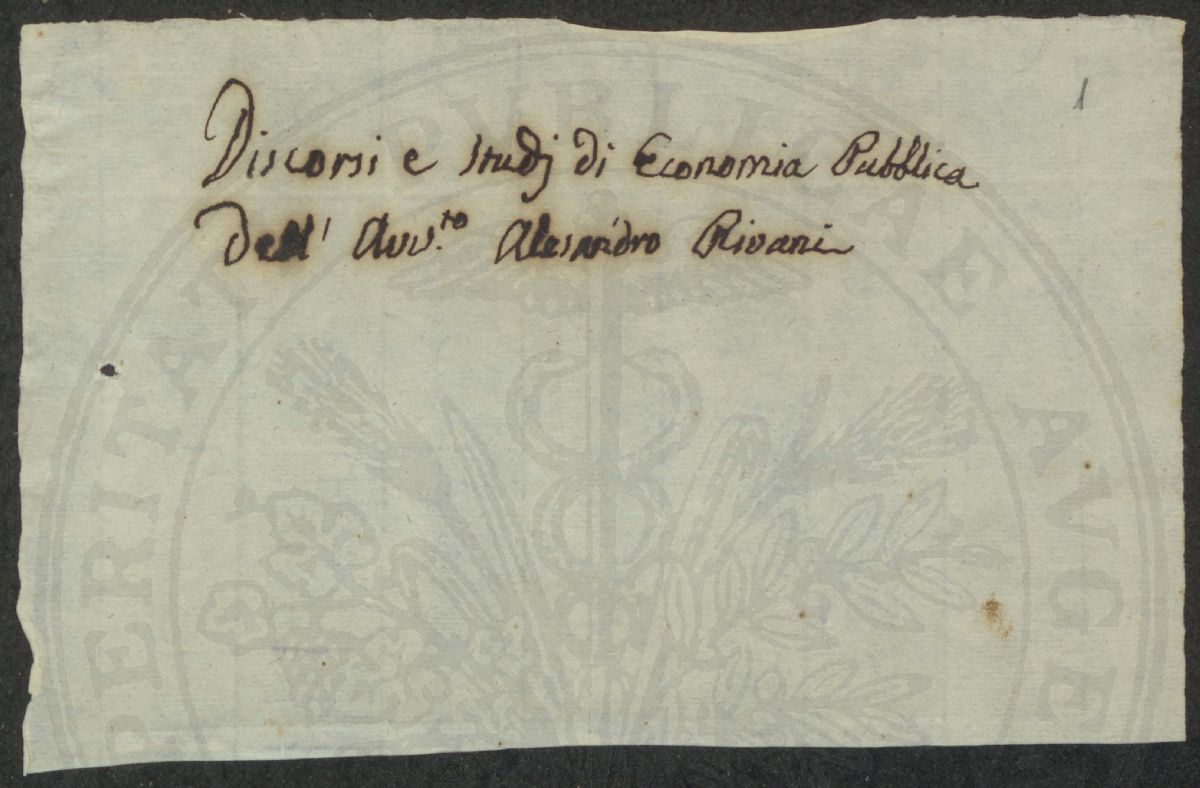 1
Discorsi e studj di Economia Pubblica
Dell' Avv.to Alesandro Rivani
PERITATI PVBLICAE AVGE